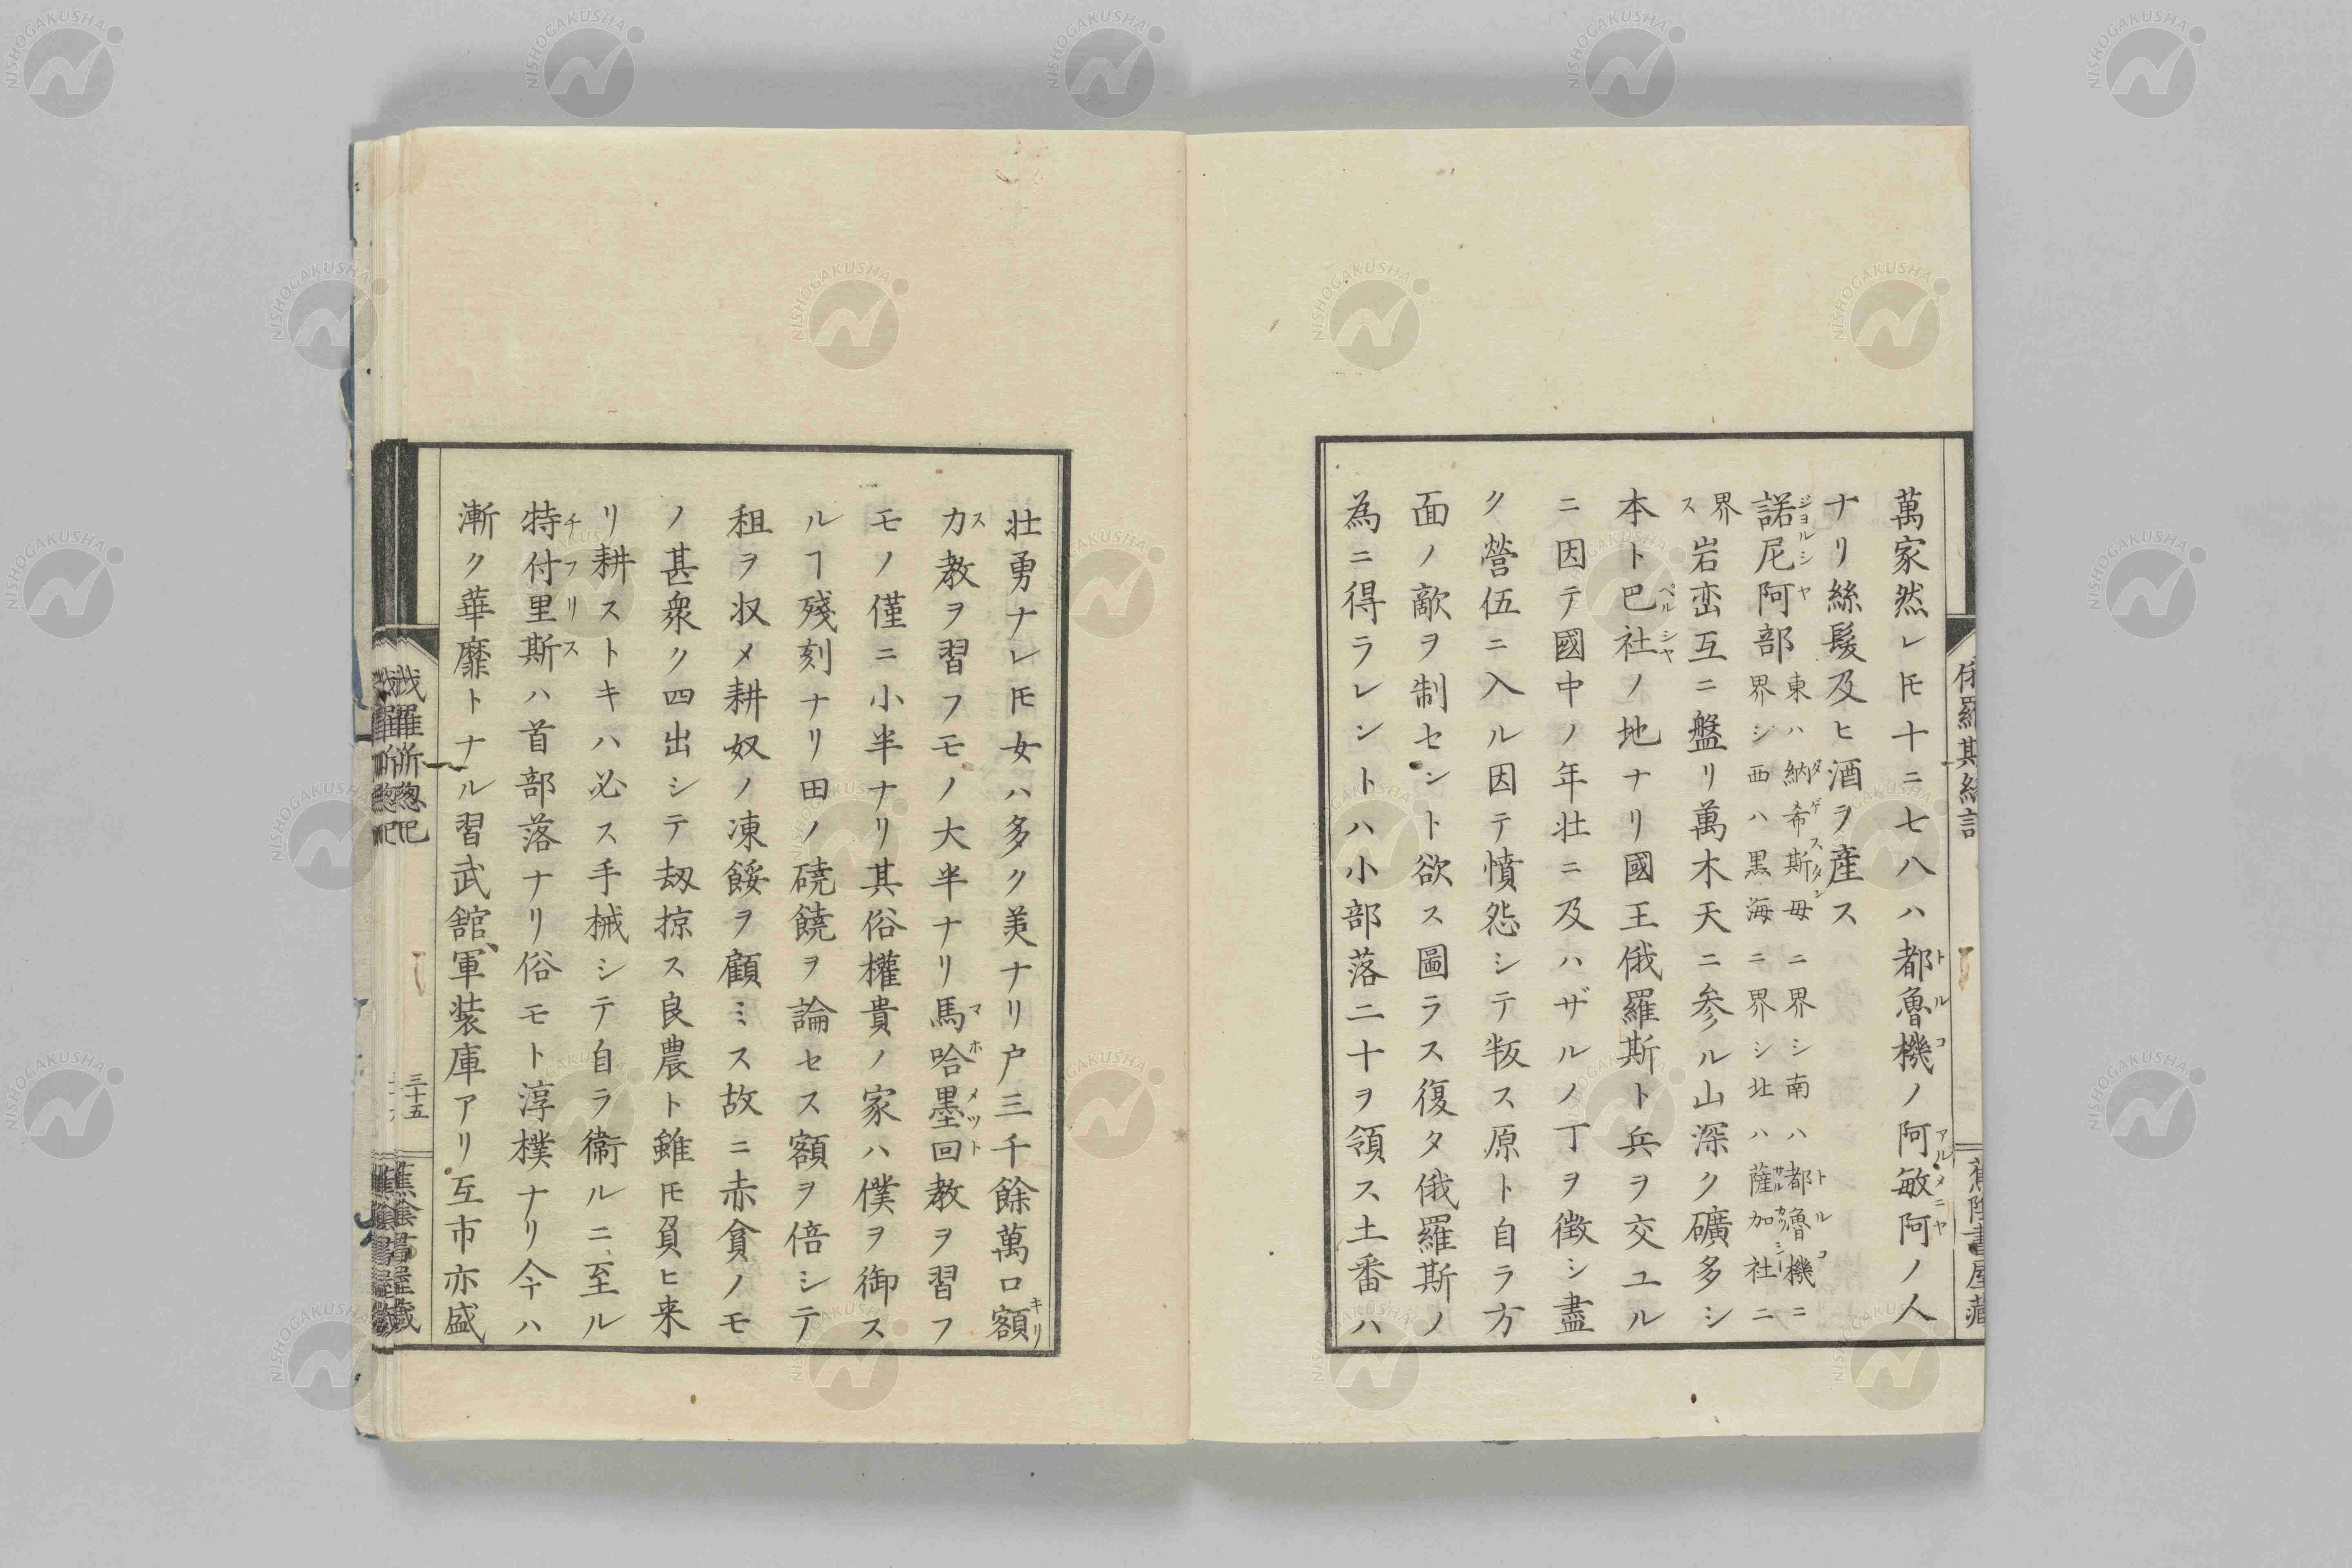 萬家然レ𪜈十ニ七八ハ都魯機ノ阿敏阿ノ人
ナリ絲髮及ヒ酒ヲ産ス
諾尼阿部東ハ納希斯毋ニ界シ南ハ都魯機ニ
界シ西ハ黒海ニ界シ北ハ薩加社ニ
界ス岩巒互ニ盤リ萬木天ニ参ル山深ク礦多シ
本ト巴社ノ地ナリ國王俄羅斯ト兵ヲ交ユル
ニ因テ國中ノ年壮ニ及ハザルノ丁ヲ徴シ盡
ク營伍ニ入ル因テ憤怨シテ叛ス原ト自ラ方
面ノ敵ヲ制セント欲ス圖ラス復タ俄羅斯ノ
為ニ得ラレントハ小部落二十ヲ領ス土番ハ
壮勇ナレ𪜈女ハ多ク美ナリ户三千餘萬口額
力教ヲ習フモノ大半ナリ馬哈墨回教ヲ習フ
モノ僅ニ小半ナリ其俗權貴ノ家ハ僕ヲ御ス
ルヿ殘刻ナリ田ノ磽饒ヲ論セス額ヲ倍シテ
租ヲ収メ耕奴ノ凍餒ヲ顧ミス故ニ赤貧ノモ
ノ甚衆ク四出シテ刼掠ス良農ト雖𪜈負ヒ来
リ耕ストキハ必ス手械シテ自ラ衞ルニ至ル
特付里斯ハ首部落ナリ俗モト淳樸ナリ今ハ
漸ク華靡トナル習武舘、軍装庫アリ互市亦盛
三十五